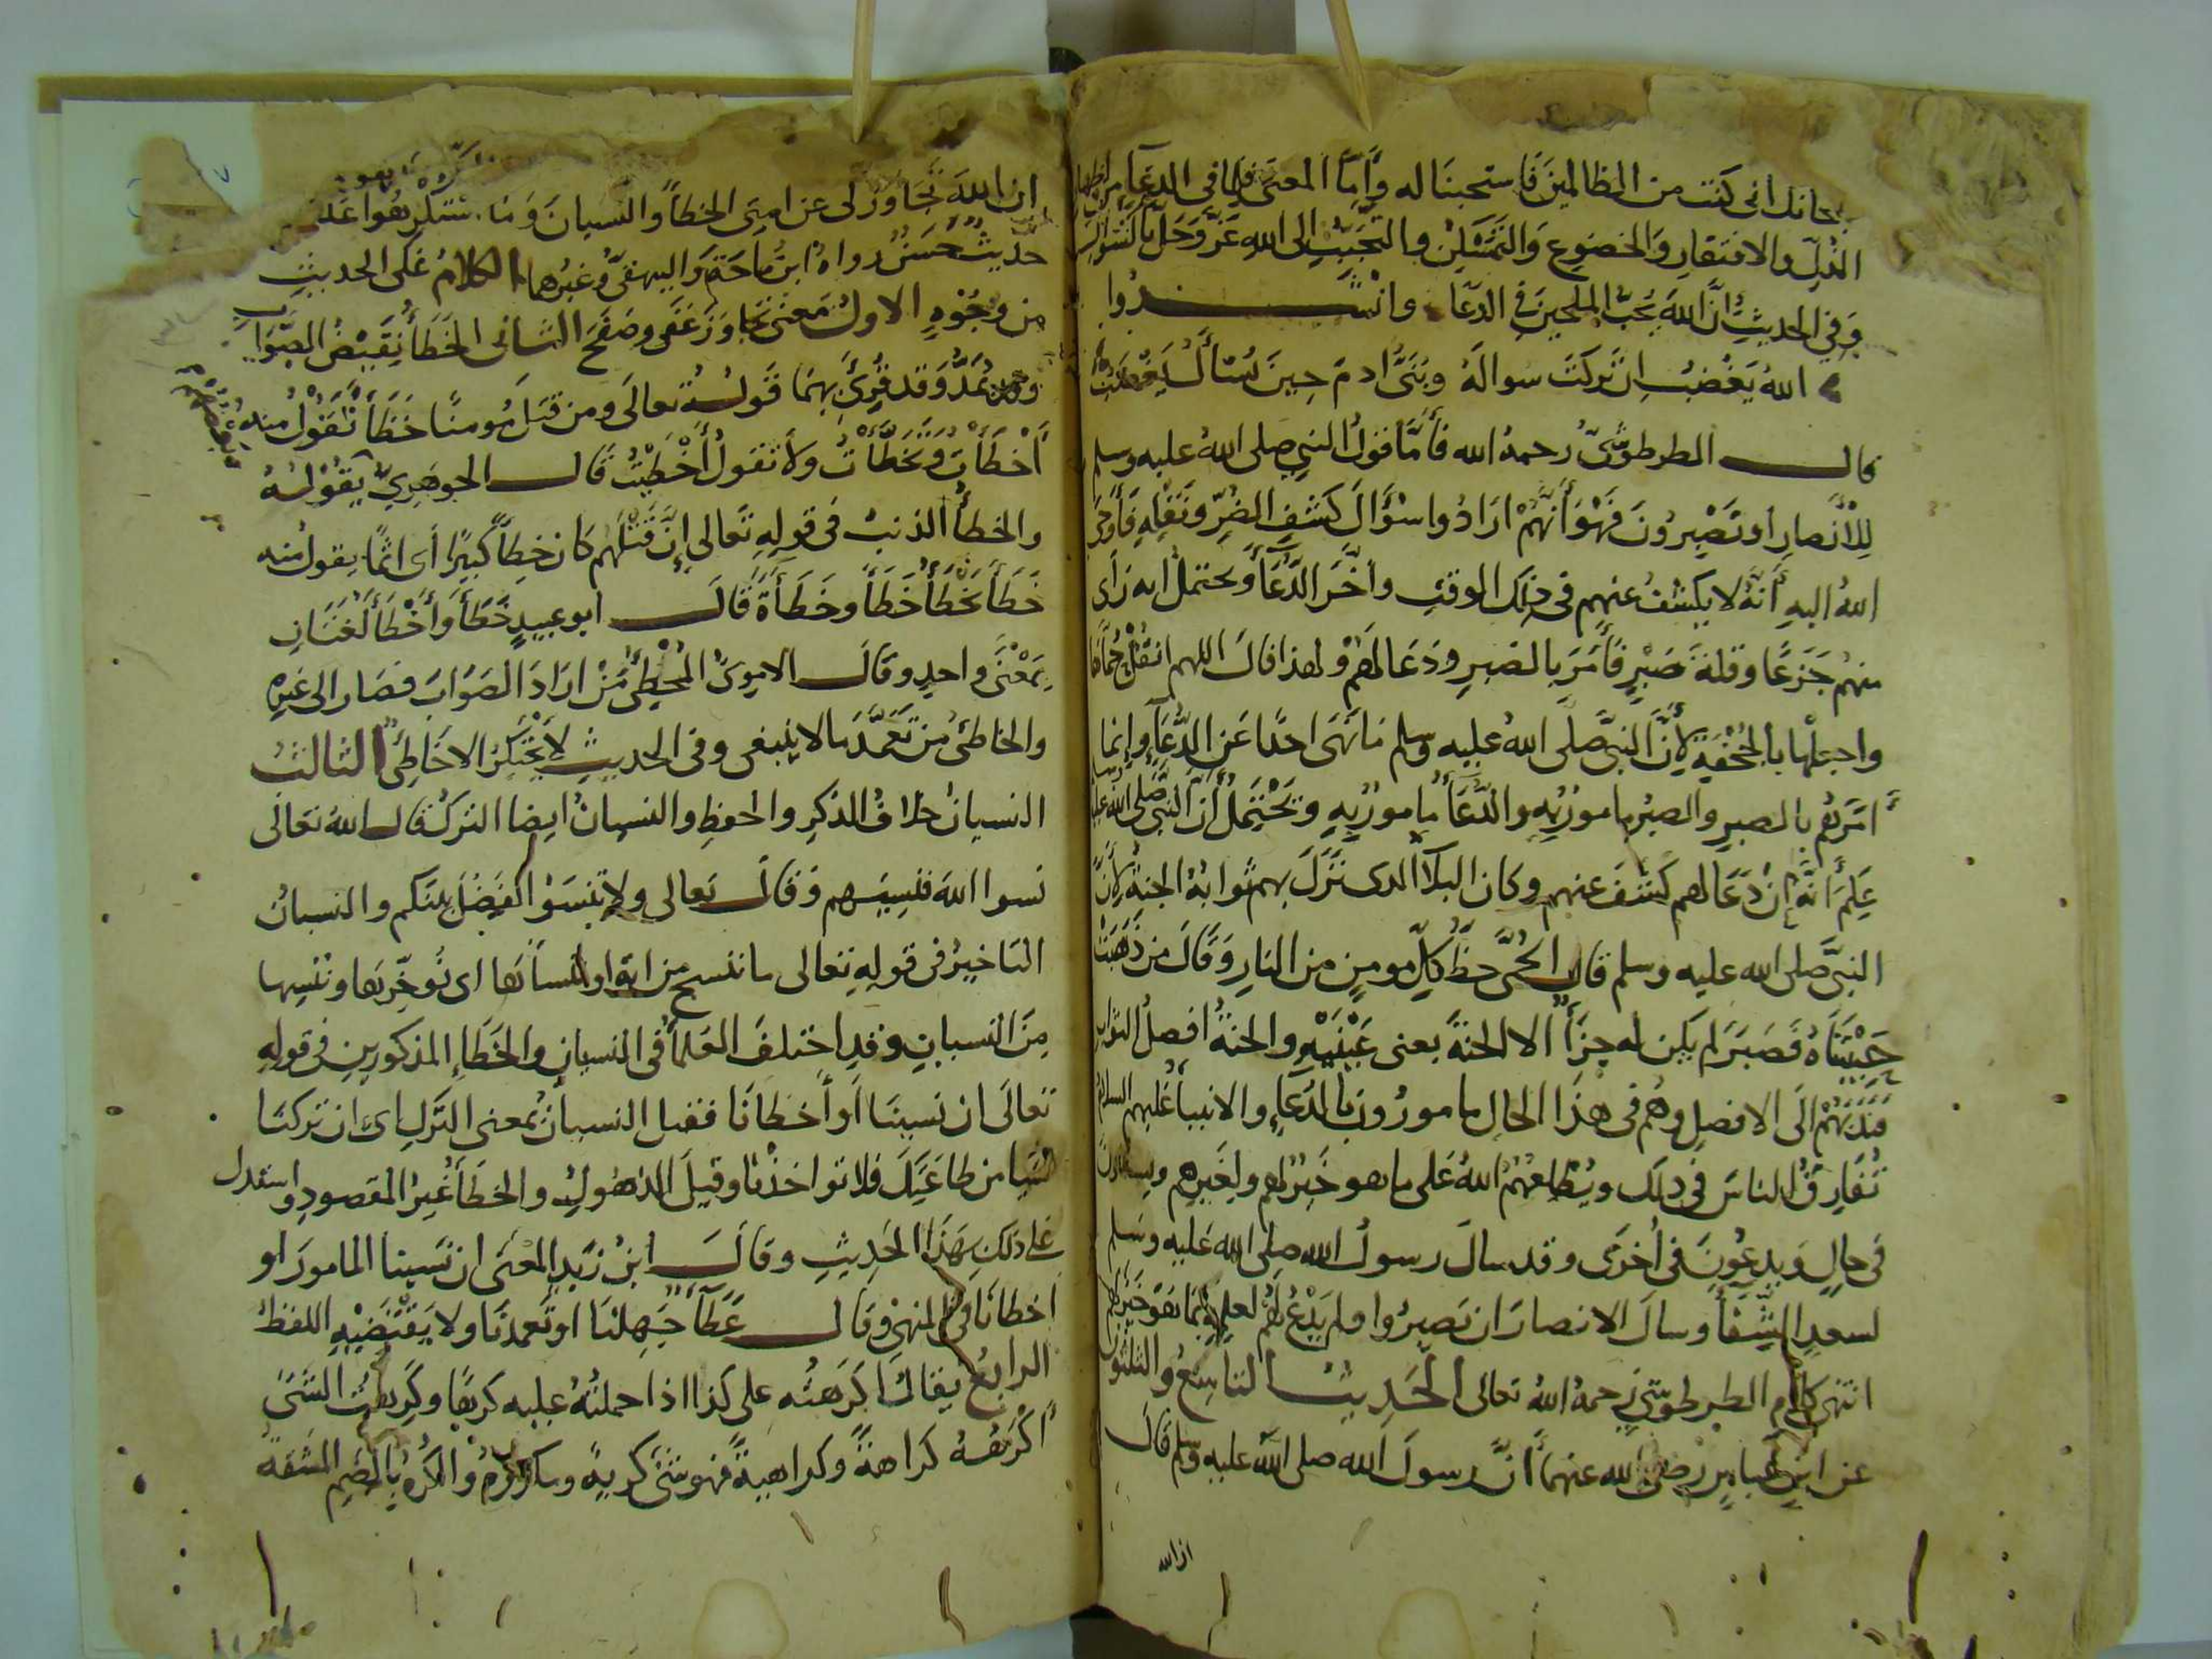 سبحانك انى كنت من الظالمين فاستجبنا له وأما المعنى فلما فى الدعاء من اظهار
الذل والافتقار والخضوع والتمسكن والتحبب الى الله عز وجل بالسؤال
وفى الحديث ان الله يحب الملحين فى الدعا وانشدوا
الله يغضب ان تركت سواله وبنى ادم حين يُسأل يغضب
قال الطرطوشى رحمه الله فأما قول النبى صلى الله عليه وسلم
للأنصار او تصبرون فهو أنهم ارادوا سؤال كشف الضر ونقله فأوحى
الله اليه أنه لا يكشف عنهم فى ذلك الوقت وأخر الدعاء ويحتمل انه رأى
منهم جزعا وقلة صبر فأمر بالصبر ودعا لهم ولهذا قال اللهم انقل حماها
واجعلها بالجحفة لأن النبى صلى الله عليه وسلم ما نهى احدا عن الدعاء وإنما
أمرهم بالصبر والصبر مامور به والدعاء مامور به ويحتمل أن النبى صلى الله عليه
علم أنه ان دعا لهم كشف عنهم وكان البلاء الذى نزل بهم ثوابه الجنة لأن
النبى صلى الله عليه وسلم قال الحمى حظ كل مومن من النار وقال من ذهبت
حبيبتاه فصبر لم يكن له جزأ الا الجنة يعنى عينيه والجنة افضل الثواب
فندبهم الى الافضل وهم فى هذا الحال مامورون بالدعاء والانبياء عليهم السلام
تفارق الناس فى ذلك ويطلعهم الله على ما هو خير لهم ولغيرهم
فى حال ويدعون فى أخرى وقد سال رسول الله صلى الله عليه وسلم
لسعد الشفأ وسال الانصار ان تصبروا ولم يدع لهم لعلمه بما هو خير لهم
انتهى كلام الطرطوشى رحمه الله تعالى الحديث التاسع والثلثون
عن ابن عباس رضى الله عنهما أن رسول الله صلى الله عليه وسلم قال
ان الله
ان الله تجاوز لى عن امتى الخطأ والنسيان وما استكرهوا عليه
حديث حسن رواه ابن ماجة والبيهقى وغيرهما الكلام على الحديث
من وجوه الاول معنى تجاوز عفى وصفح الثانى الخطأ نقيض الصواب
وقد يمد وقد قرئ بهما قوله تعالى ومن قتل مومنا خطأ تقول منه
أخطأت وتخطأت ولا تقول أخطيت قال الجوهرى يقوله
والخطأ الذنب فى قوله تعالى إن قتلهم كان خطأ كبيرا أى اثما يقول منه
خطأ يخطأ خطأ وخطأة قال ابو عبيد خطأ وأخطأ لغتان
بمعنى واحد وقال الاموى المخطئ من اراد الصواب فصار الى غيره
والخاطئ من تعمد ما لا ينبغى وفى الحديث لا يحتكر الا خاطئ الثالث
النسيان خلاف الذكر والحفظ والنسيان ايضا الترك قال الله تعالى
نسوا الله فنسيهم وقال تعالى ولا تنسوا الفضل بينكم والنسيان
التاخير فى قوله تعالى ما ننسخ من اية او ننسأها اى نؤخرها وننسها
من النسيان وقد اختلف العلماء فى النسيان والخطاء المذكورين فى قوله
تعالى ان نسينا أو أخطانا فقيل النسيان بمعنى الترك اى ان تركنا
شيا من طاعتك فلا تواخذنا وقيل الذهول والخطأ غير المقصود واستدل
على ذلك بهذا الحديث وقال ابن زيد المعنى ان نسينا المامور او
اخطانا فى المنهى وقال عطأ جهلنا او تعمدنا ولا يقتضيه اللفظ
الرابع يقال اكرهته على كذا اذا حملته عليه كرها وكرهت الشئ
أكرهه كراهة وكراهية فهو شئ كريه ومكروه والكره بالضم المشقة